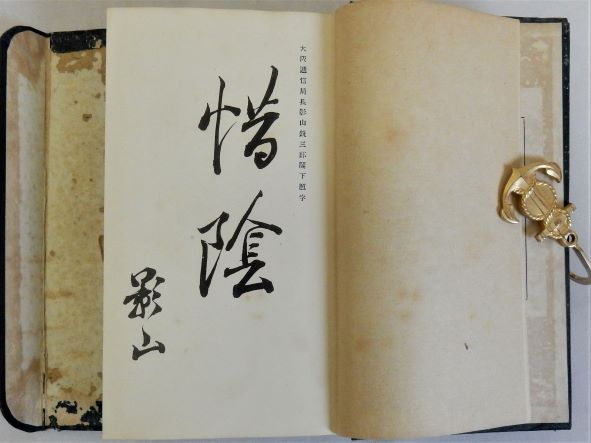 大阪逓信局長影山銑三郎閣下題字
惜陰
影山